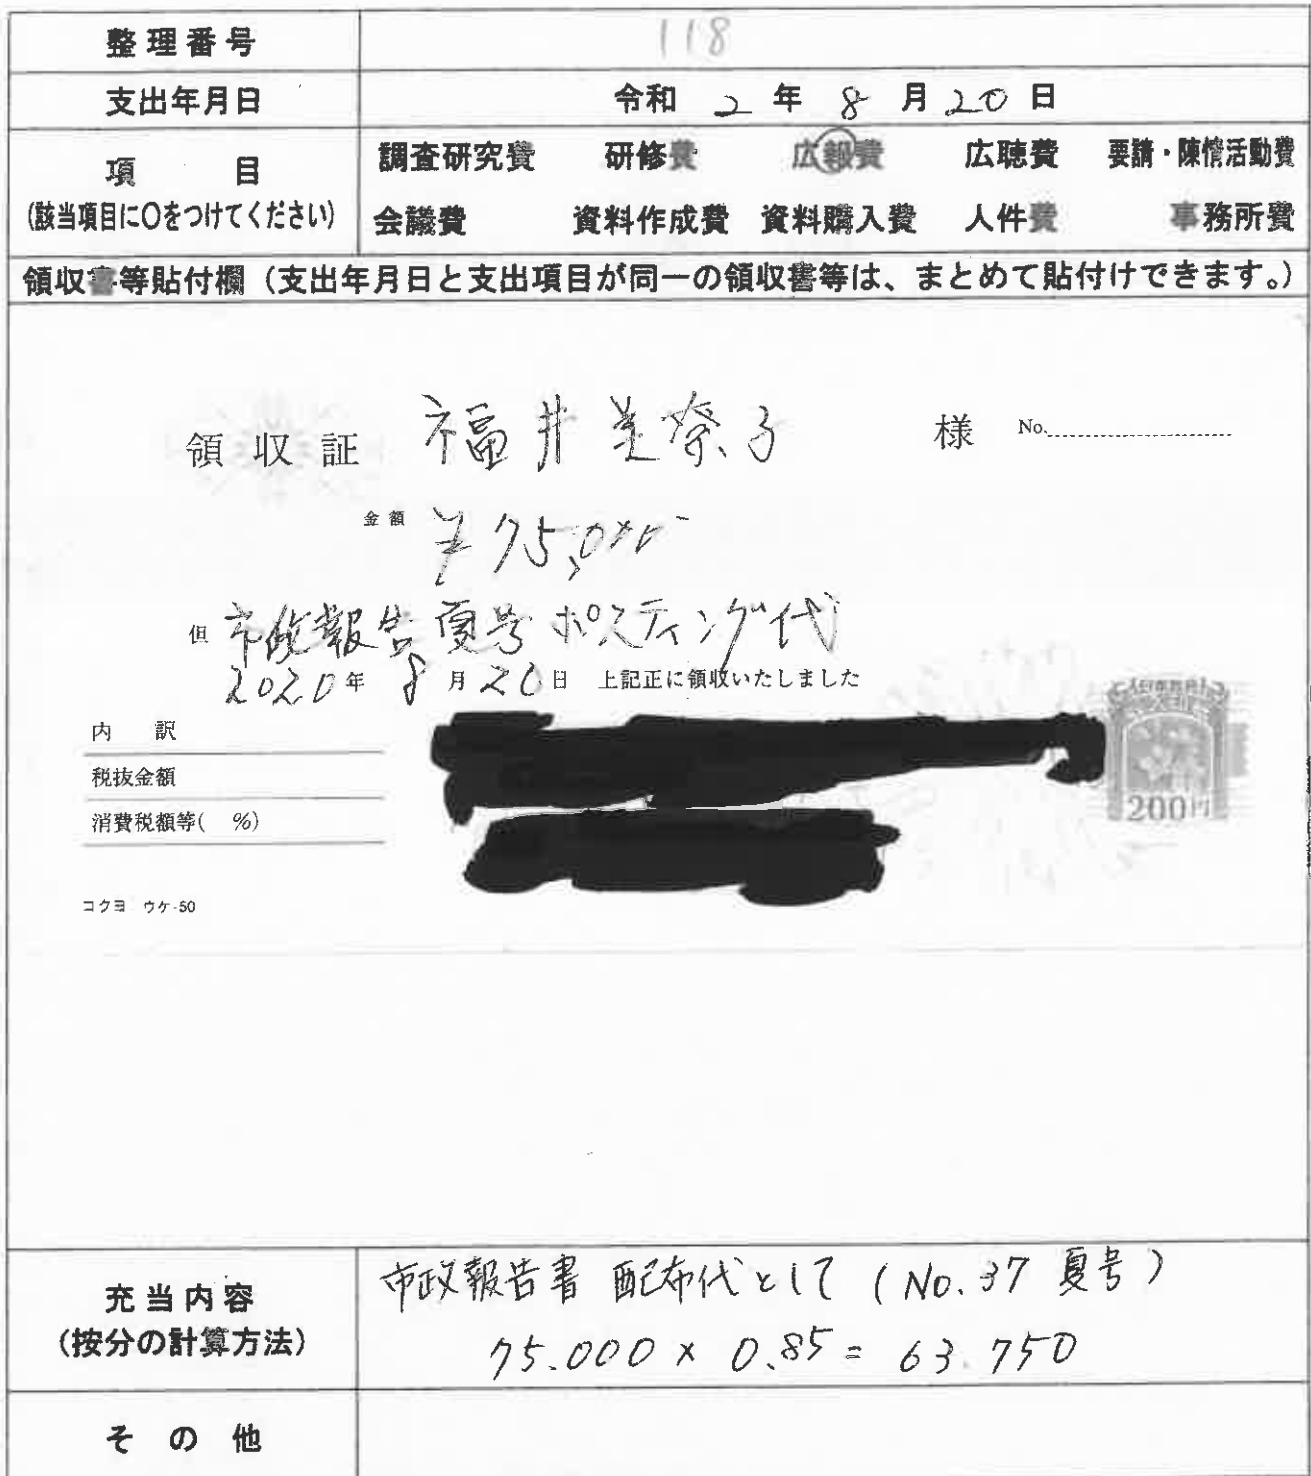 整理番号 118
支出年月日 令和 2 年 8 月 20 日
項 目
(該当項目に○をつけてください)
調査研究費 研修費 広報費 広聴費 要請・陳情活動費
会議費 資料作成費 資料購入費 人件費 事務所費
領収書等貼付欄（支出年月日と支出項目が同一の領収書等は、まとめて貼付けできます。）
領収証 福井美奈子 様 No.
金額 ¥75,000-
但 市政報告夏号ポスティング代
2020年 8月20日 上記正に領収いたしました
内 訳
税抜金額
消費税額等( %)
200円
コクヨ ウケ-50
充当内容
(按分の計算方法)
市政報告書 配布代として (No.37 夏号)
75.000 × 0.85 = 63.750
その他